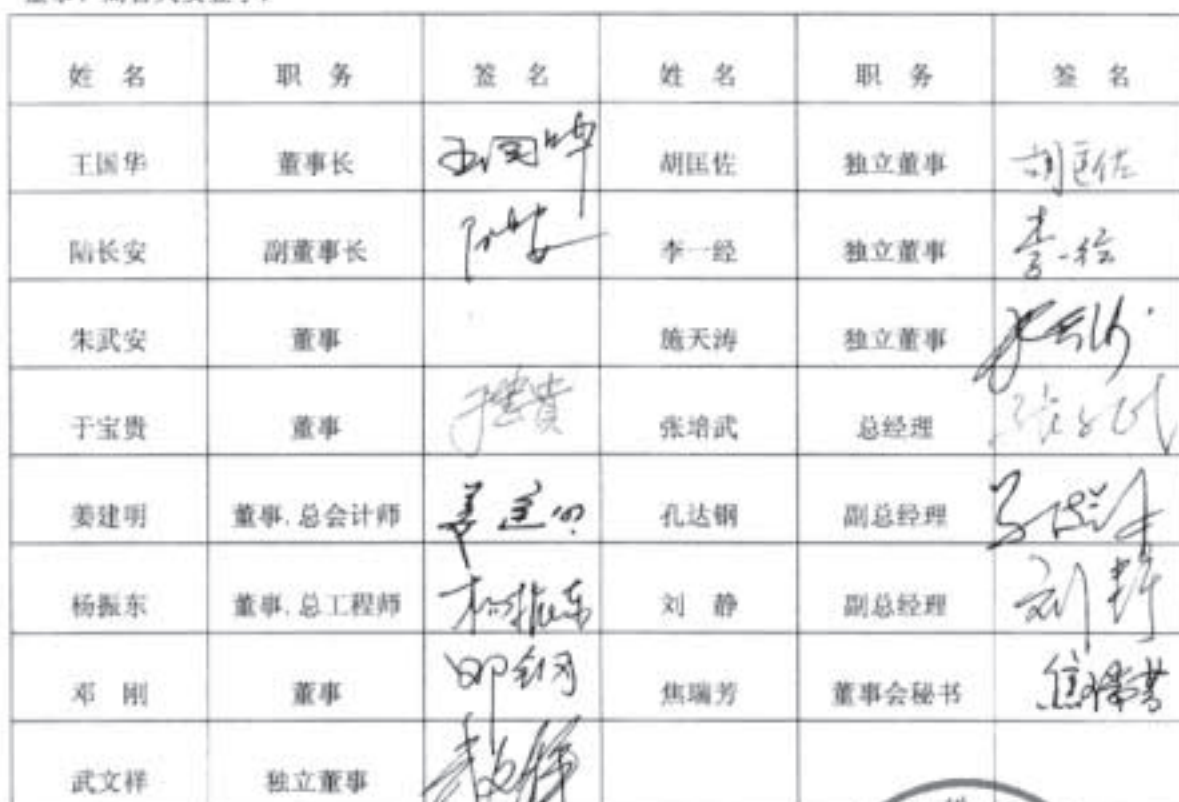 姓 名 职 务 签 名 姓 名 职 务 签 名
王国华 董事长 王国华 胡匡佐 独立董事 胡匡佐
陆长安 副董事长 李一经 独立董事 李一经
朱武安 董事 施天涛 独立董事
于宝贵 董事 于宝贵 张培武 总经理
姜建明 董事,总会计师 姜建明 孔达钢 副总经理
杨振东 董事,总工程师 杨振东 刘 静 副总经理 刘静
邓 刚 董事 邓钢 焦瑞芳 董事会秘书 焦瑞芳
武文祥 独立董事